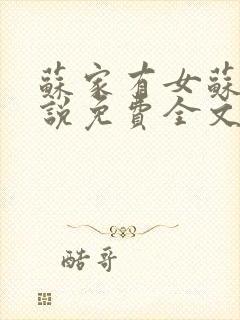 蘇家有女蘇
說免費全文
酷哥